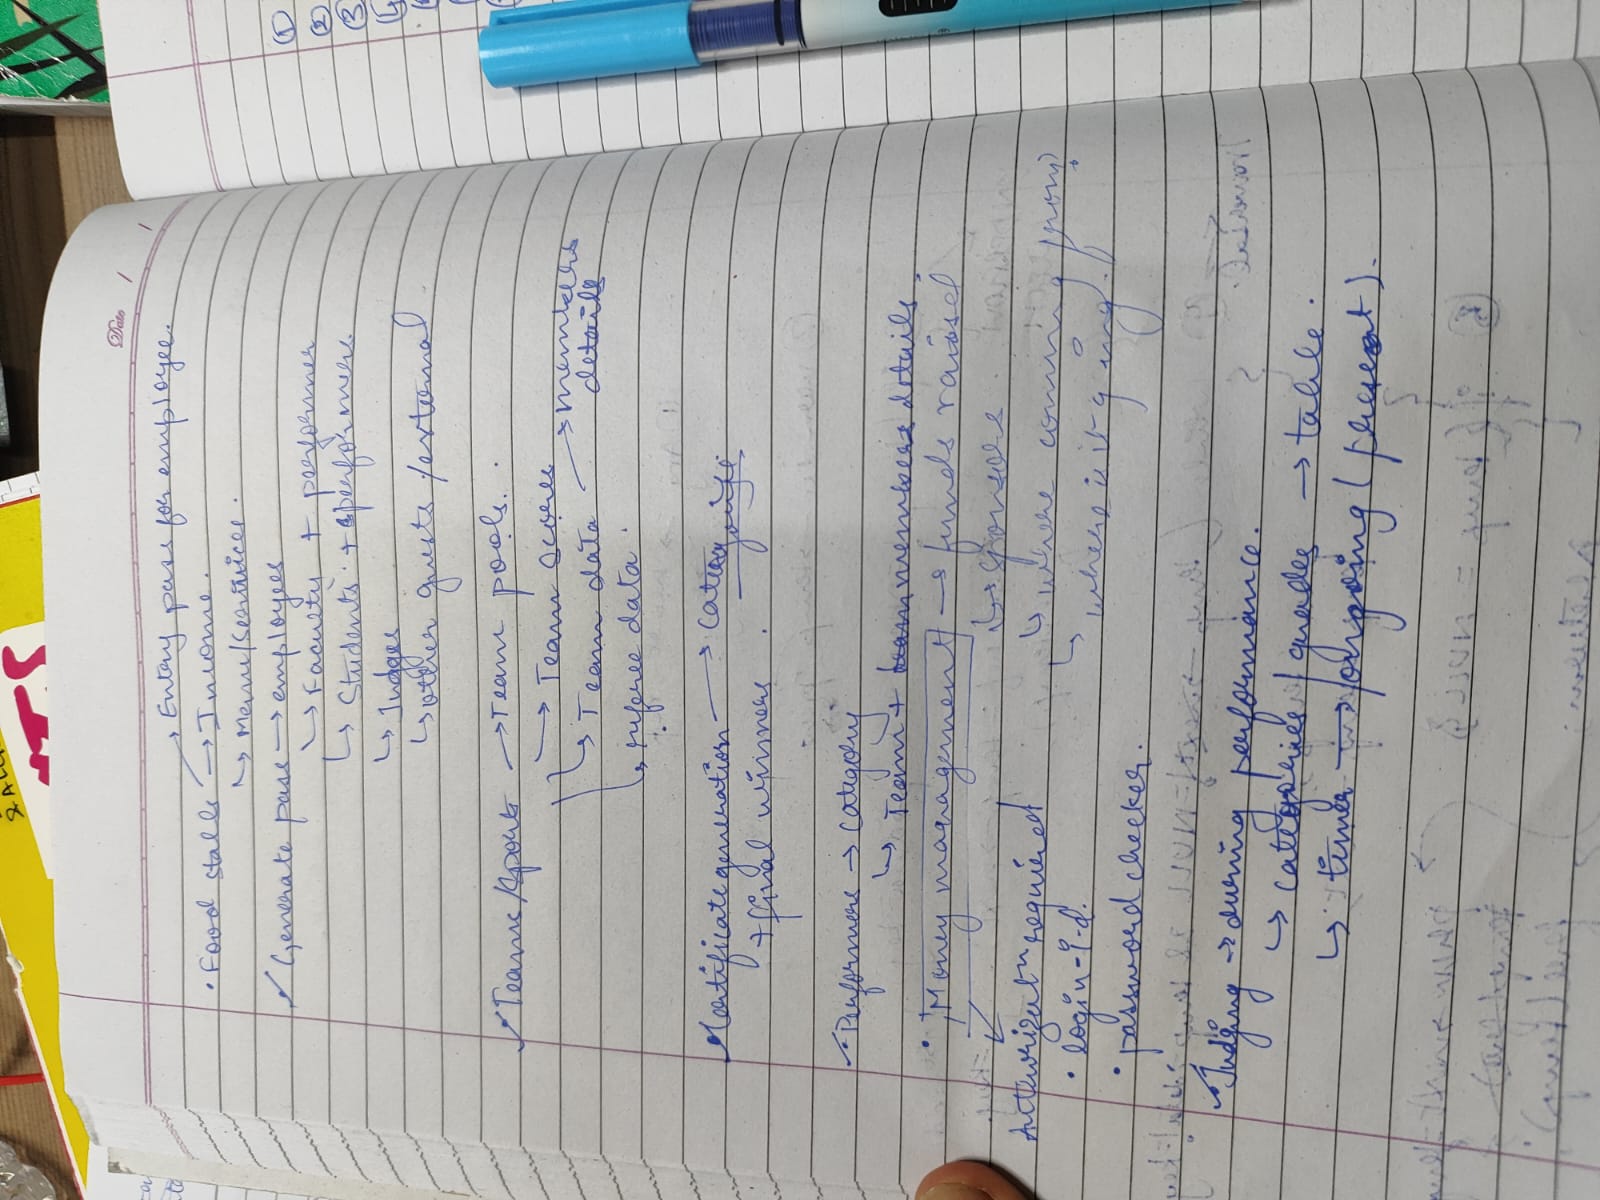 Date / /
→ Entry pass for employee.
• Food stalls → Income.
↳ Menu/service.
✓ Generate pass → employees
↳ Faculty + performer
↳ Students + performers.
↳ Judge
↳ other guests/external
✓ Teams/Sports → Team pools.
→ Team scores
↳ Team data → members details
↳ referee data.
✓ Certificate generation → categories
+ final winners.
✓ Performers → category
↳ Team + members details
• Money management → funds raised
↳ sponsors
↳ where coming from?
↳ where is it going.
Authorization required
• login-i-d.
• password checker.
✓ Judging → during performance.
↳ categories/grades → table.
↳ timer → ongoing (present).